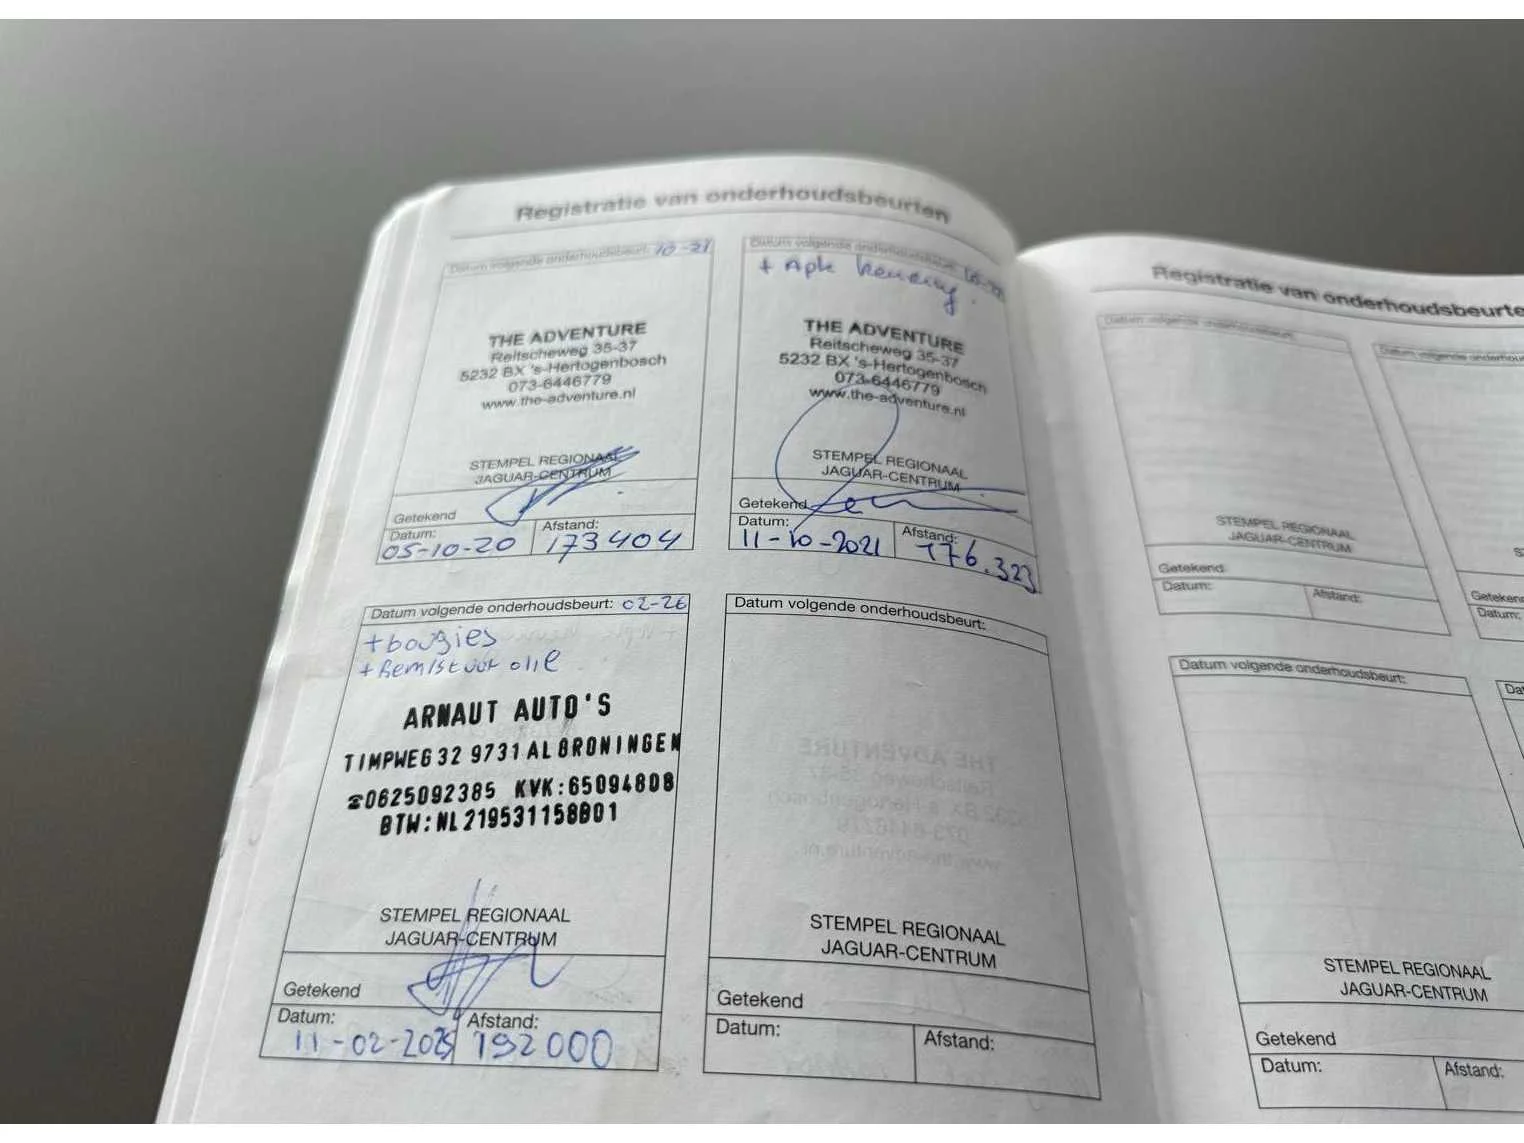 Registratie van onderhoudsbeurten
Datum volgende onderhoudsbeurt: 10-21
THE ADVENTURE
Reitscheweg 35-37
5232 BX 's-Hertogenbosch
073-6446779
www.the-adventure.nl
STEMPEL REGIONAAL
JAGUAR-CENTRUM
Getekend
Datum:
05-10-20
Afstand:
173404
Datum volgende onderhoudsbeurt:
+ Apk keuring
THE ADVENTURE
Reitscheweg 35-37
5232 BX 's-Hertogenbosch
073-6446779
www.the-adventure.nl
STEMPEL REGIONAAL
JAGUAR-CENTRUM
Getekend
Datum:
11-10-2021
Afstand:
176.323
Datum volgende onderhoudsbeurt: 02-26
+bougies
+Rem/stuur olie
ARNAUT AUTO'S
TIMPWEG 32 9731 AL GRONINGEN
☎0625092385 KVK:65094808
BTW:NL219531158B01
STEMPEL REGIONAAL
JAGUAR-CENTRUM
Getekend
Datum:
11-02-2025
Afstand:
192000
Datum volgende onderhoudsbeurt:
STEMPEL REGIONAAL
JAGUAR-CENTRUM
Getekend
Datum:
Afstand:
Registratie van onderhoudsbeurte
Datum volgende onderhoudsbeurt:
STEMPEL REGIONAAL
JAGUAR-CENTRUM
Getekend
Datum:
Afstand:
Datum volgende
Getekend
Datum:
Datum volgende onderhoudsbeurt:
STEMPEL REGIONAAL
JAGUAR-CENTRUM
Getekend
Datum:
Afstand: